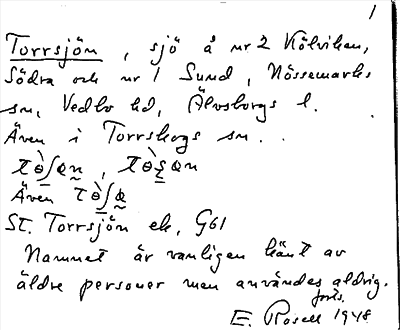 1
Torrsjön, sjö å nr 2 Kölviken,
Södra och nr 1 Sund, Nössemarks
sn, Vedbo hd, Älvsborgs l.
Även i Torrskogs sn.
Även
St. Torrsjön ek, G61
Namnet är vanligen känt av
äldre personer men användes aldrig.
forts.
E. Rosell 1948